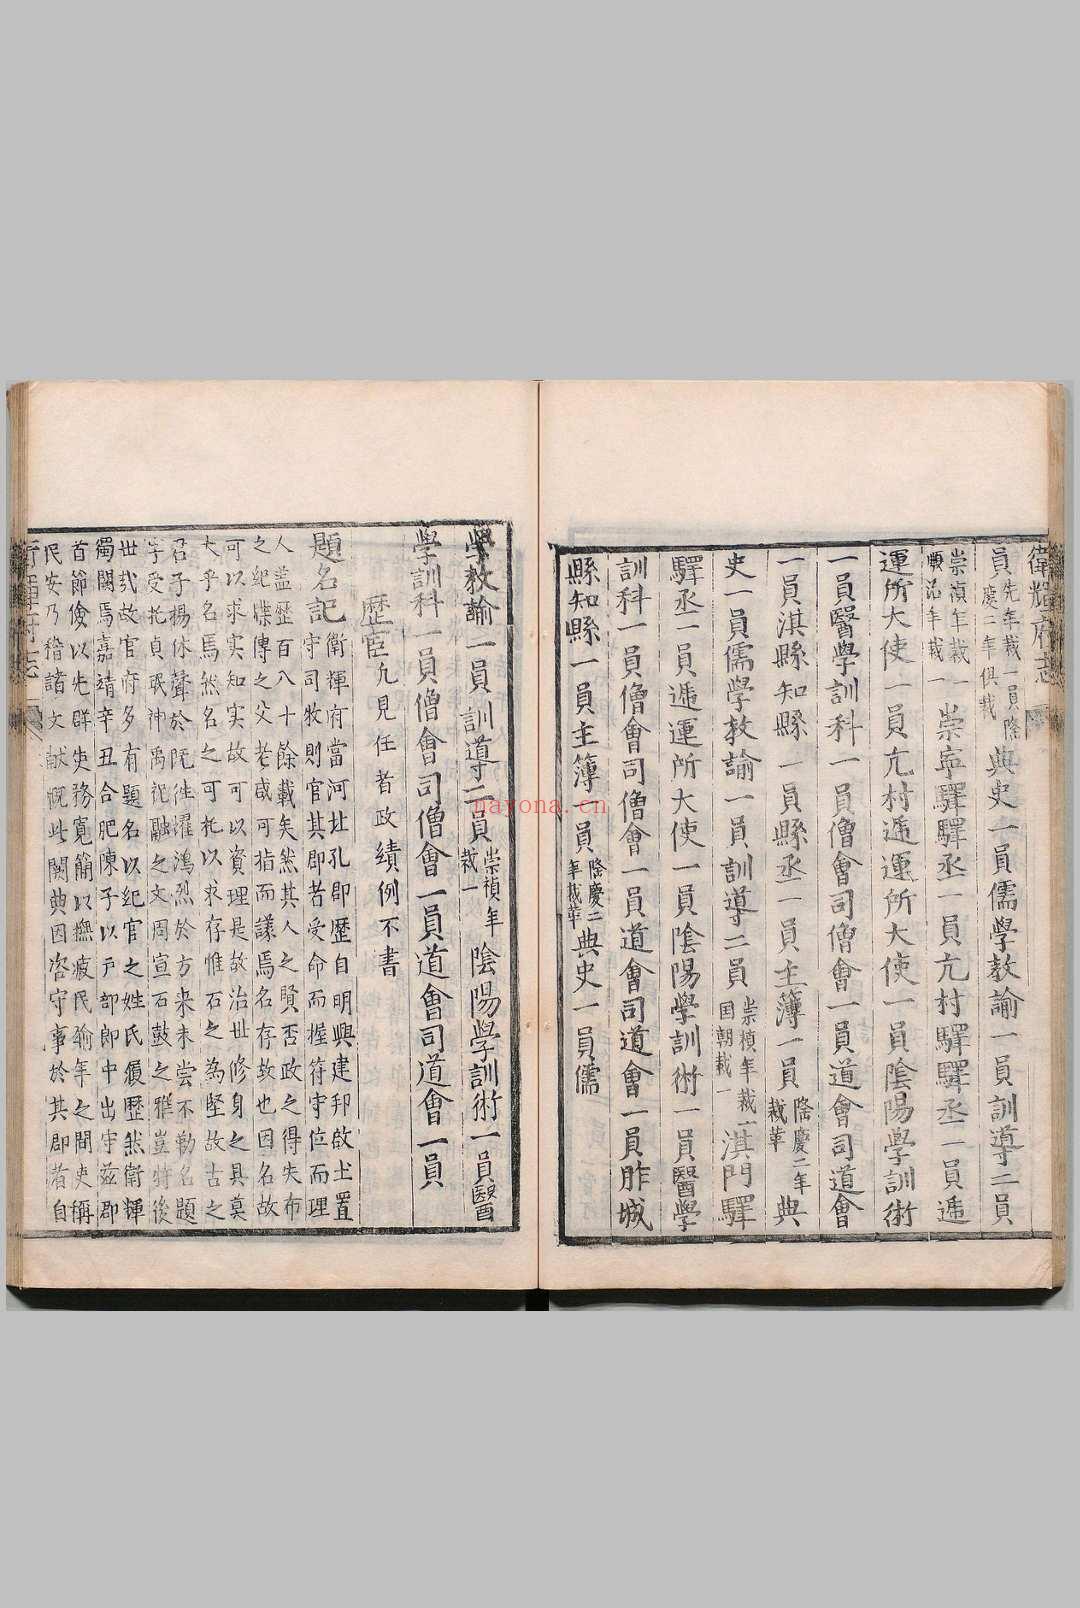 衛輝府志
員先年裁一員隆慶二年俱裁典史一員儒學教諭一員訓導二員
崇禎年裁一順治年裁一崇寧驛驛丞一員亢村驛驛丞一員遞
運所大使一員亢村遞運所大使一員陰陽學訓術
一員醫學訓科一員僧會司僧會一員道會司道會
一員淇縣知縣一員縣丞一員主簿一員隆慶二年裁革典
史一員儒學教諭一員訓導二員崇禎年裁一国朝裁一淇門驛
驛丞一員遞運所大使一員陰陽學訓術一員醫學
訓科一員僧會司僧會一員道會司道會一員胙城
縣知縣一員主簿一員隆慶二年裁革典史一員儒
學教諭一員訓導二員崇禎年裁一陰陽學訓術一員醫
學訓科一員僧會司僧會一員道會司道會一員
歷官凡見任者政績例不書
題名記衛輝府當河北孔郡歷自明興建邦啟土置
守司牧則官其郡者受命而握符守位而理
人盖歷百八十餘載矣然其人之賢否政之得失布
之紀牒傳之父老咸可指而議焉名存故也因名故
可以求實知實故可以資理是故治世修身之具莫
大乎名焉然名之可托以求存惟石之為堅故古之
君子揚休聲於既徃濯鴻烈於方来未尝不勒名題
字受托貞珉神禹祀融之文周宣石鼓之雅豈特後
世㢤故官府多有題名以纪官之姓氏履歷然衛輝
獨闕焉嘉靖辛丑合肥陳子以戸部郎中出守兹郡
首節儉以先群吏務寬簡以撫疲民踰年之間吏稱
民安乃稽諸文献慨此闕典因咨守事於其郡者自
nayona.cn